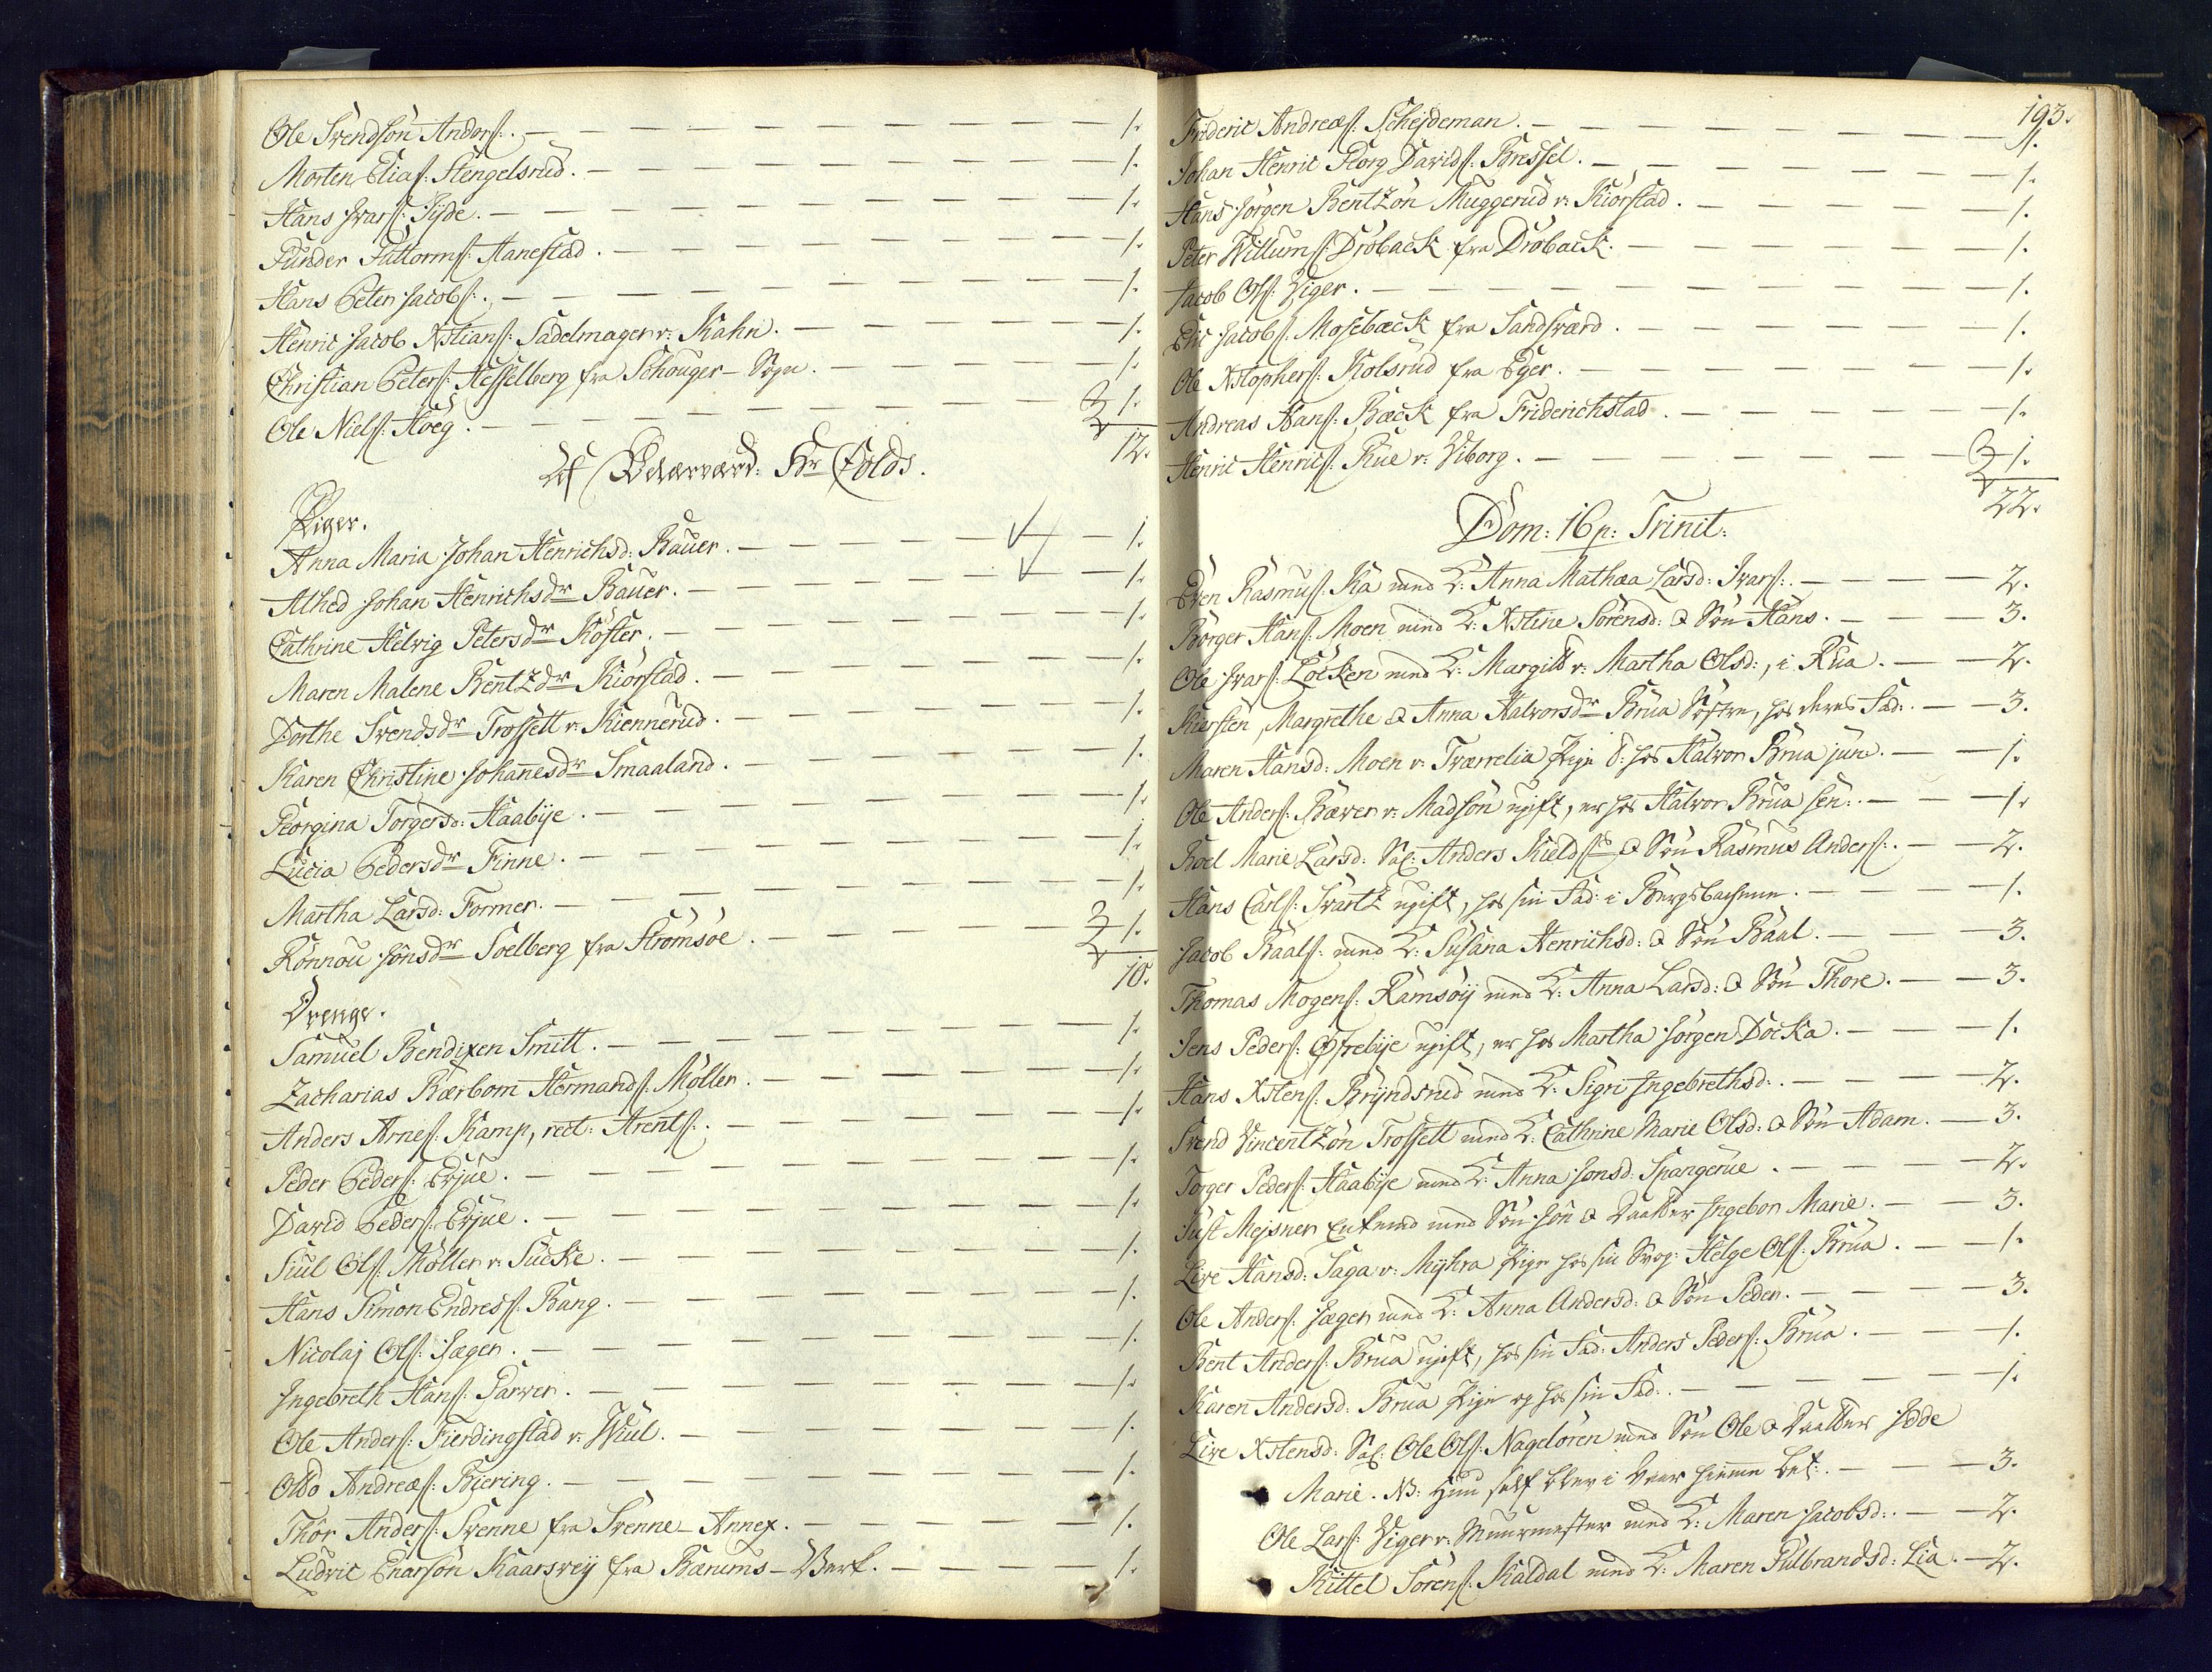 Ole Svendsön Anders: — 1.
Morten Elias: Stengelsrud. — 1.
Hans Ivars: Tyde. — 1.
Gunder Guttorms: Aanestad. — 1.
Hans Peter Jacobs: — 1.
Henric Jacob Xstians: Sadelmager v: Kahn. — 1.
Christian Peters: Hesselberg fra Schouger-Sogn. — 1.
Ole Niels: Höeg. — 1.
12.
Af Hr Colds.
Piger.
Anna Maria Johan Henrichsd: Bauer. — 1.
Alhed Johan Henrichsdr Bauer. — 1.
Cathrine Helvig Petersdr Köster. — 1.
Maren Malene Bentzdr Kiörstad. — 1.
Dorthe Svendsdr Trossett v: Kiennerud. — 1.
Karen Christine Johannesdr Smaaland. — 1.
Georgina Torgersd: Haabye. — 1.
Lucia Pedersdr Finne. — 1.
Martha Larsd: Former. — 1.
Rönnou Jönsdr Soelberg fra Strömsöe. — 1.
10.
Drenge.
Samuel Bendixen Smitt. — 1.
Zacharias Bærbom Hermands: Möller. — 1.
Anders Arnes: Kamp, rect: Arents: — 1.
Peder Peders: Erjue. — 1.
David Peders: Erjue. — 1.
Juul Ols: Möller v: Sucke. — 1.
Hans Simon Endress: Bang. — 1.
Nicolaj Ols: Jæger. — 1.
Ingebreth Hans: Garver. — 1.
Ole Anders: Fierdingstad v: Wiul. — 1.
Otto Andreæs: Biering. — 1.
Thör Anders: Svenne fra Svenne-Annex. — 1.
Ludvic Enarsön Kaarsvey fra Bærums-Verk. — 1.
193.
Frideric Andreæs: Schejdeman. — 1.
Johan Henric Georg Davids: Bressel. — 1.
Hans Jörgen Bentzön Muggerud v: Kiörstad. — 1.
Peter Willums: Dröback fra Dröback. — 1.
Jacob Ols: Viger. — 1.
Eric Jacobs: Mosebæck fra Sandsværd. — 1.
Ole Xstophers: Kolsrud fra Eger. — 1.
Andreas Hans: Bæck fra Friderichstad. — 1.
Henric Henrics: Rue v: Viborg. — 1.
22.
Dom: 16 p: Trinit:
Even Rasmus: Ka med K: Anna Mathæa Larsd: Ivars: — 2.
Börger Hans: Moen med K: Xstine Sörensd: & Sön Hans. — 3.
Ole Ivars: Löcken med K: Margitt v: Martha Olsd:, i Rua. — 2.
Kiersten, Margrethe & Anna Halvorsdr Brua Söstre, hos deres Fad: — 3.
Maren Hansd: Moen v: Tværrelia Pige t: hos Halvor Brua jun. — 1.
Ole Anders: Bæver v: Madsön ugift, er hos Halvor Brua sen: — 1.
Boel Marie Larsd: Sal: Anders Kields: & Sön Rasmus Anders: — 2.
Hans Carls: Svartz ugift, hos sin Fad: i Bergsbachene. — 1.
Jacob Baals: med K: Susana Henrichsd: & Sön Baal. — 3.
Thomas Mogens: Ramsöy med K: Anna Larsd: & Sön Thore. — 3.
Jens Peders: Öfrebye ugift, er hos Martha Jörgen Docka. — 1.
Hans Xstens: Bryndsrud med K: Sigri Ingebrethsd: — 2.
Svend Vincentzön Trossett med K: Cathrine Marie Olsd: & Sön Adam. — 3.
Torger Peders: Haabye med K: Anna Jonsd: Spangerue. — 2.
Just Mejsner Enkemd med Sön Jön & Daatter Ingebor Marie. — 3.
Live Hansd: Saga v: Myhra Pige hos sin Svog: Helge Ols: Brua. — 1.
Ole Anders: Jæger med K: Anna Andersd: & Sön Peder. — 3.
Bent Anders: Brua ugift, hos sin Fad: Anders Peders: Brua. — 1.
Karen Andersd: Brua Pige og hos sin Fad: — 1.
Live Xstensd: Sal: Ole Ols: Nagelören med Sön Ole & Daatter Jdde
Marie. NB: Hun self blev i Vaar hieme bet: — 3.
Ole Lars: Viger v: Muurmester med K: Maren Jacobsd: — 2.
Kittel Sörens: Kaldal med K: Maren Gulbrandsd: Lia. — 2.